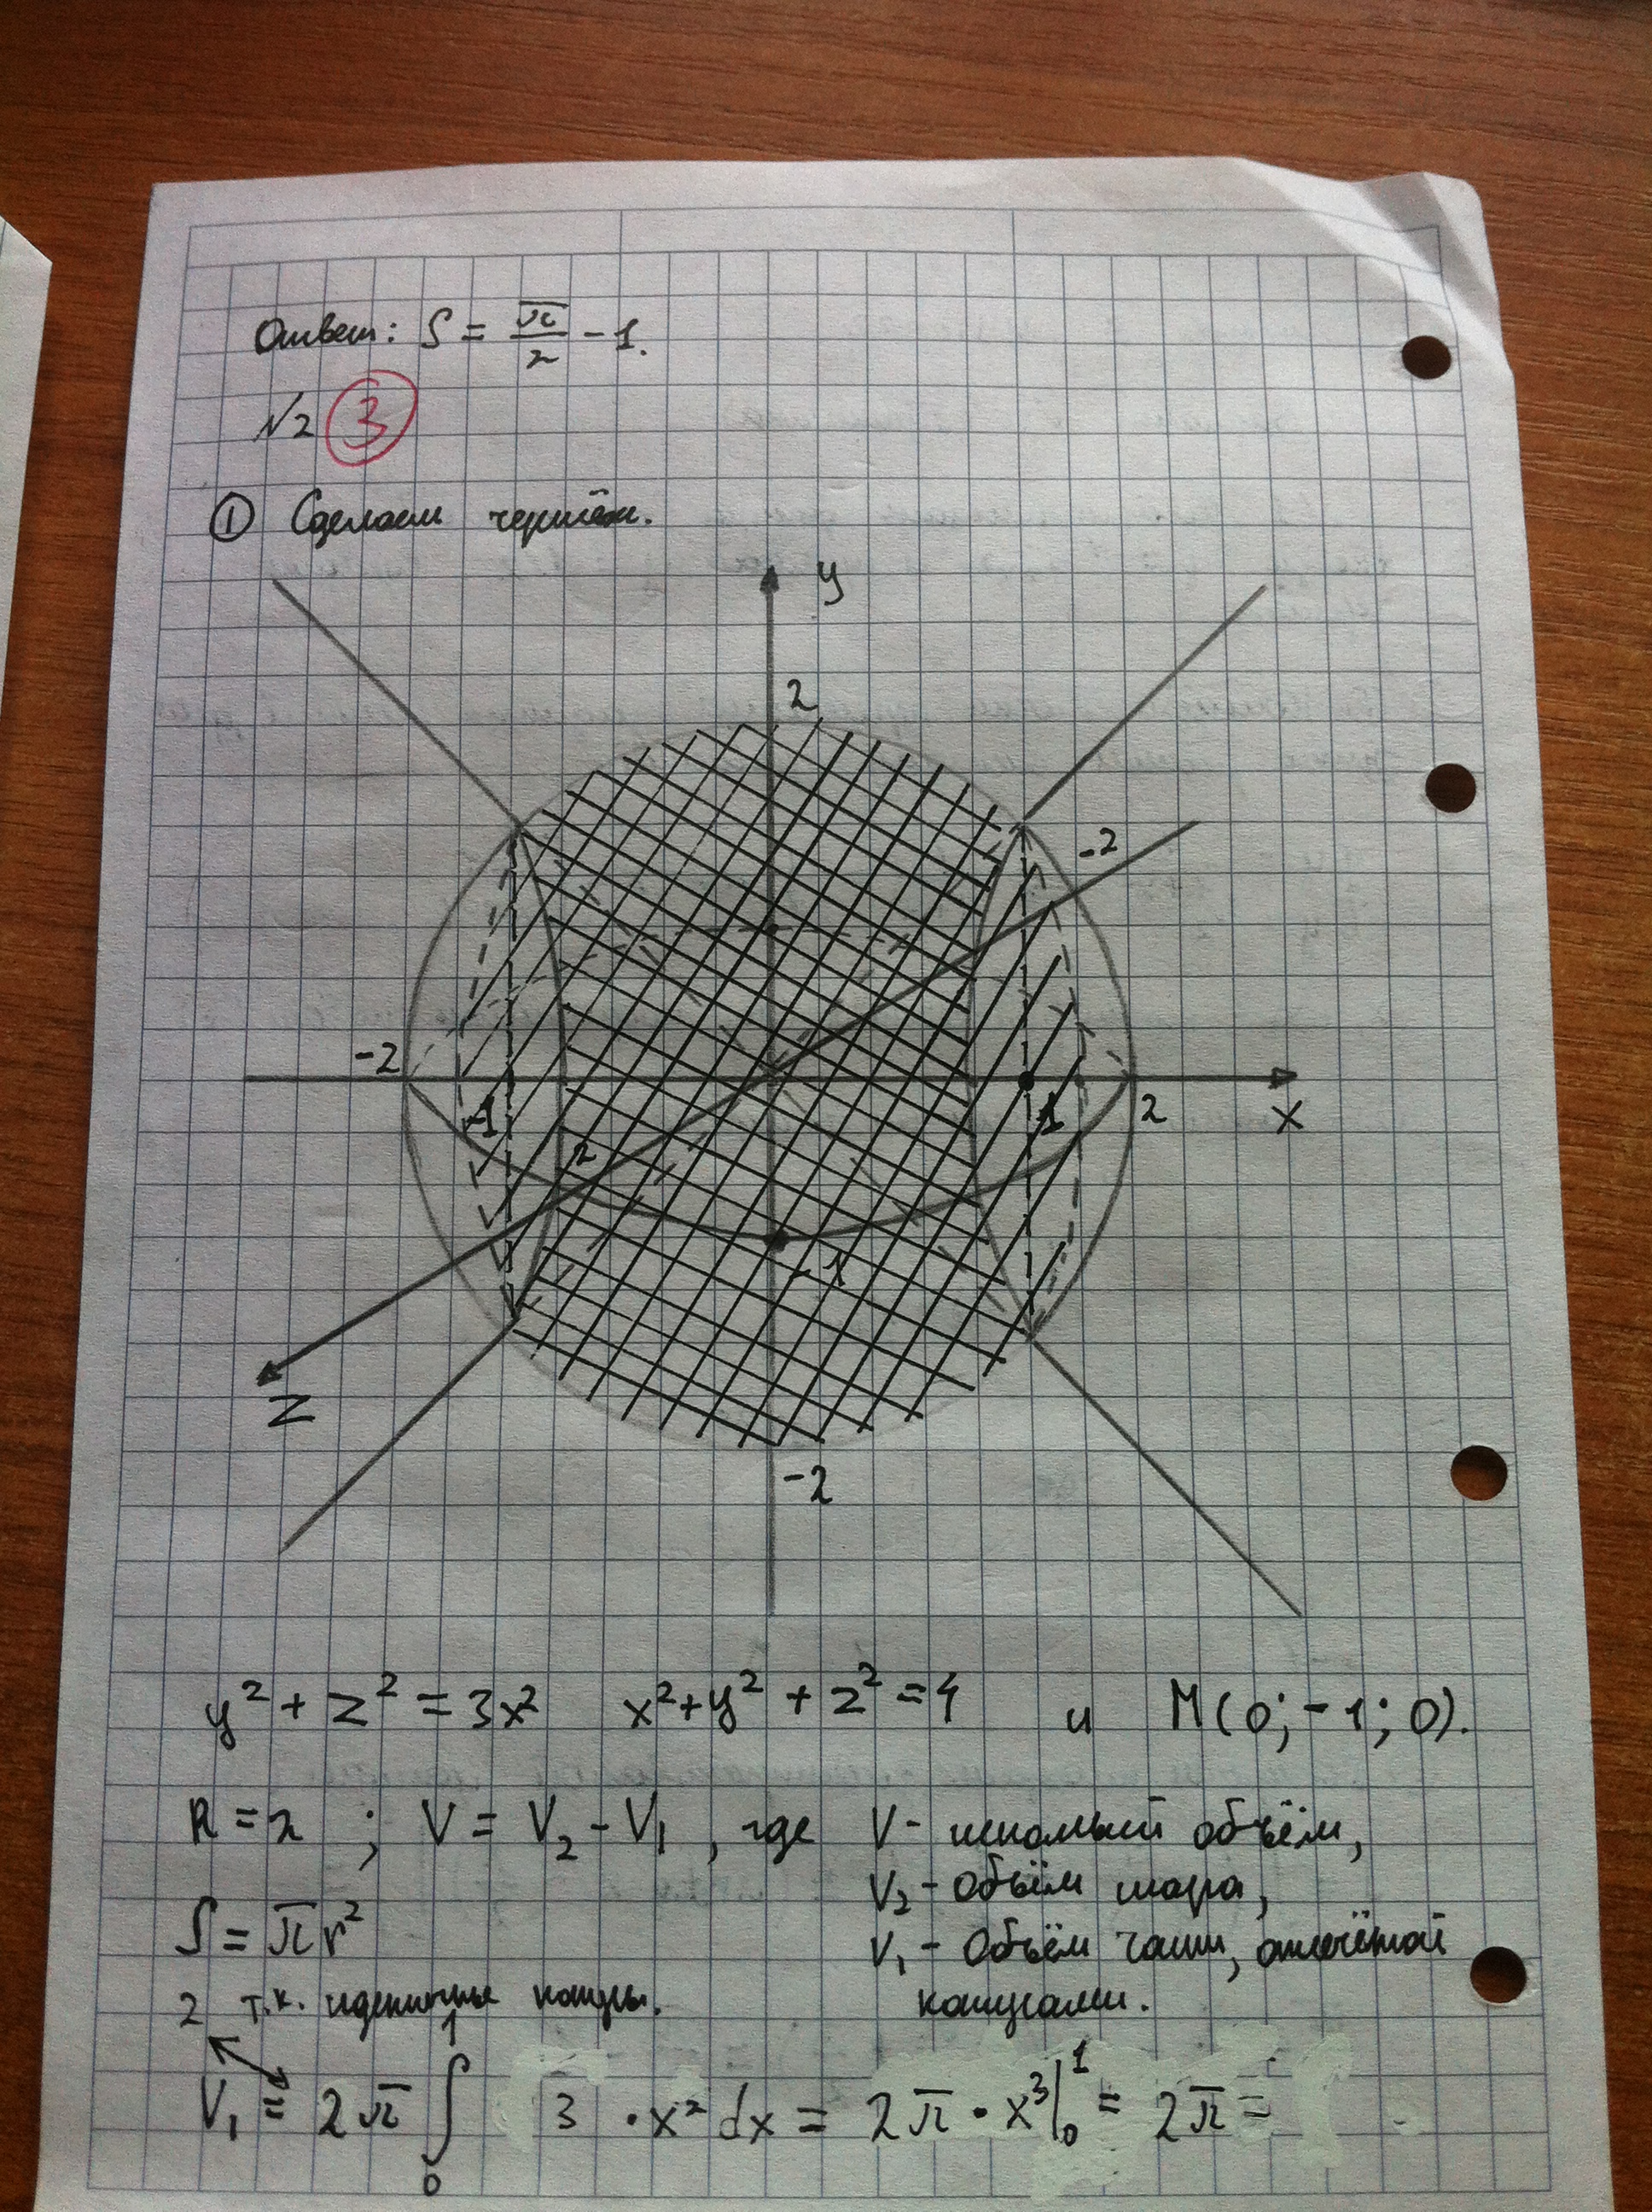 Ответ: S = π/2 - 1.
N2 ③
① Сделаем чертёж.
y
2
-2
-2
-1
1
2
x
2
-1
z
-2
y² + z² = 3x² x² + y² + z² = 4 и M(0; -1; 0).
R = 2 ; V = V₂ - V₁ , где V - искомый объём,
V₂ - объём шара,
S = πr²
V₁ - объём чаши, отсечённой
2 т.к. идентичные конусы.
конусами.
V₁ = 2π ∫₀¹ 3 · x² dx = 2π · x³|₀¹ = 2π =